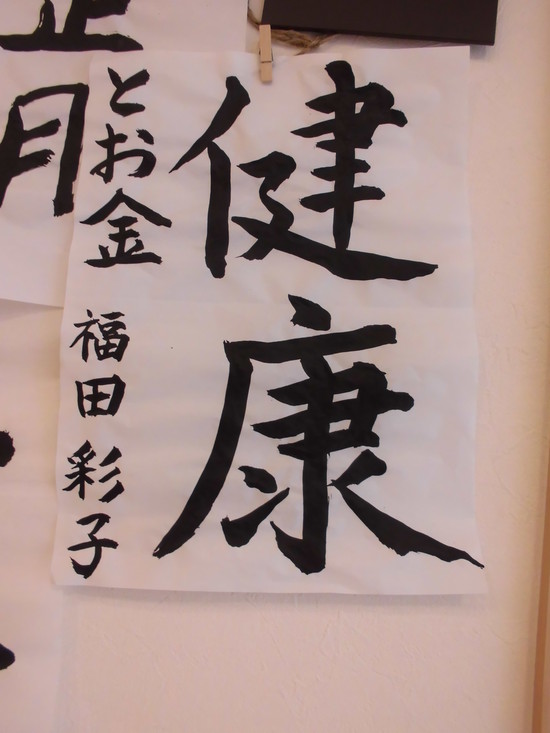 健康
とお金
福田彩子
正月